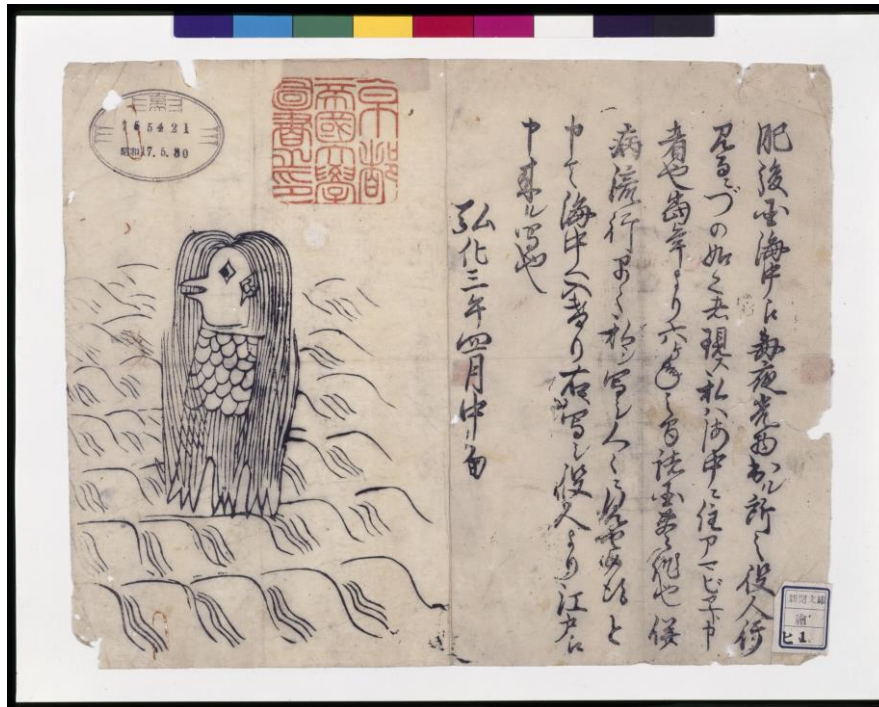 肥後国海中え毎夜光物出ル所之役人行
見るニづの如く者現ス私ハ海中ニ住アマビヱト申
者也当年より六ヶ年之間諸国豊作也併
病流行早々私シ写シ人々ニ見せ候得と
申て海中へ入けり右写シ役人より江戸え
申来ル写也
弘化三年四月中旬
京都
帝國大學
圖書之印
165421
昭和17.5.30
ヒ1